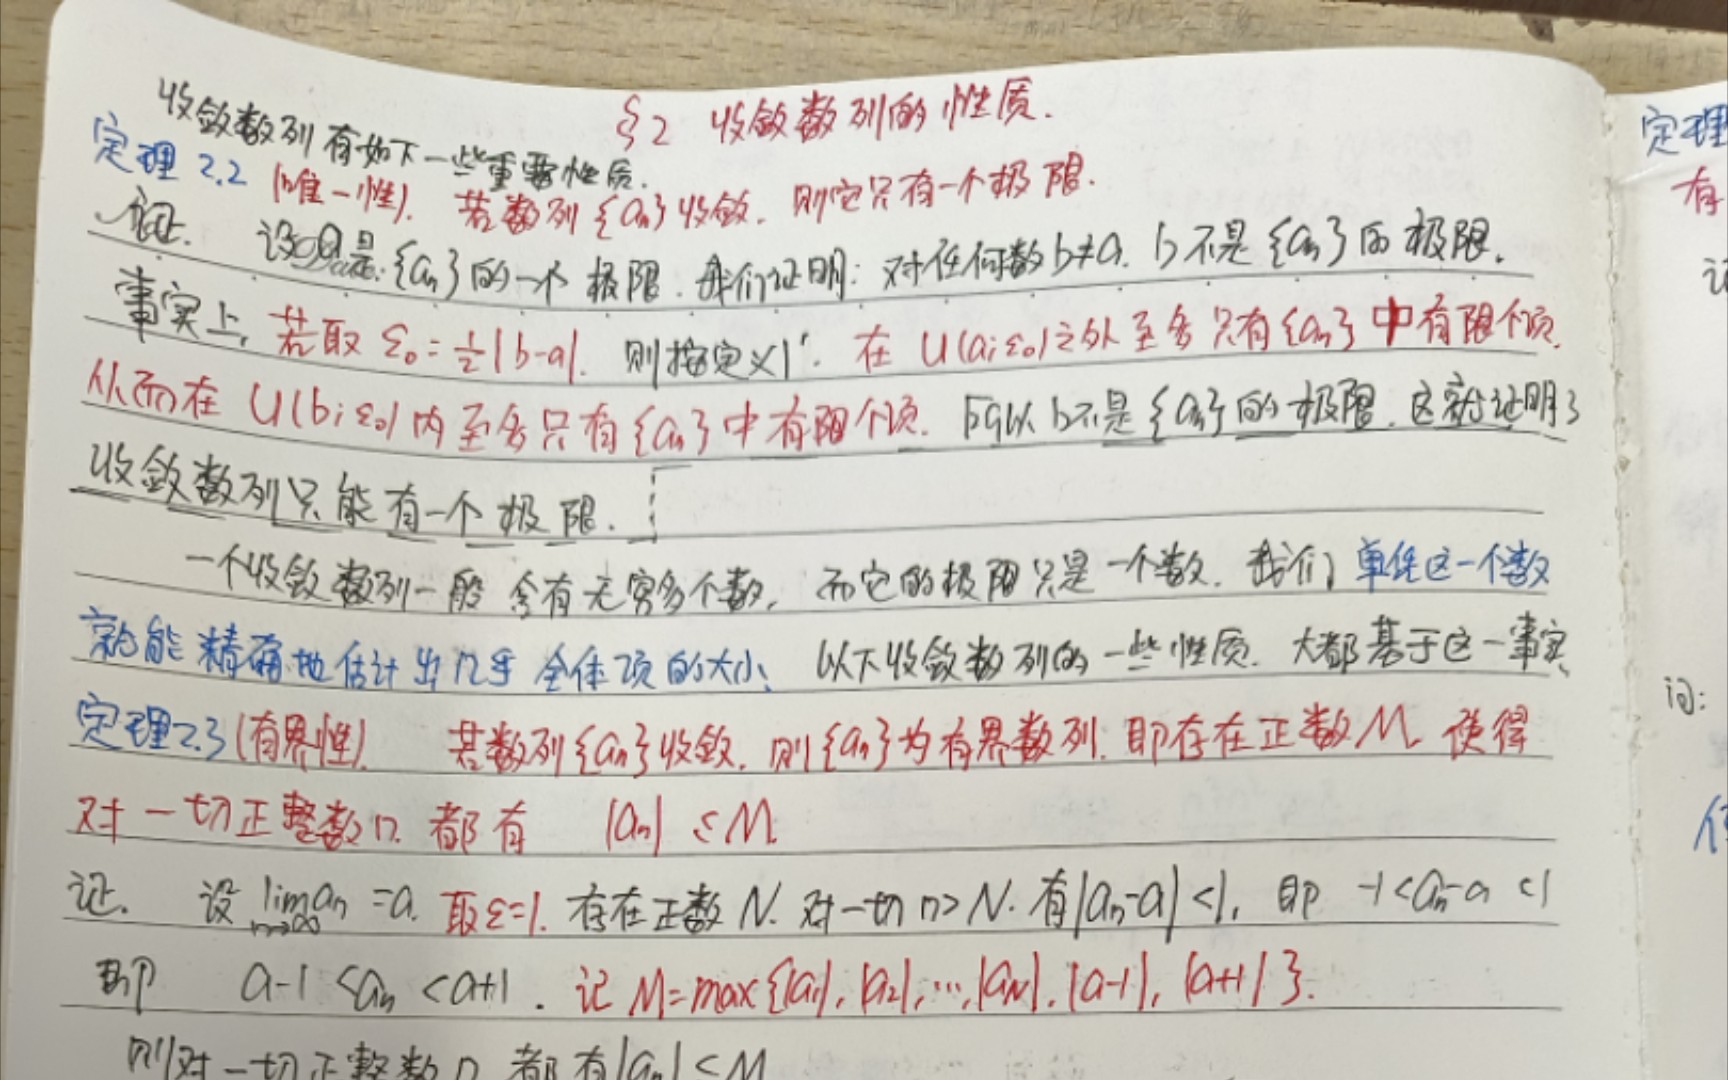 §2 收敛数列的性质.
收敛数列有如下一些重要性质.
定理2.2 (唯一性). 若数列{aₙ}收敛. 则它只有一个极限.
证. 设a是{aₙ}的一个极限. 我们证明: 对任何数b≠a. b不是{aₙ}的极限.
事实上, 若取 ε₀=½|b-a|. 则按定义1'. 在U(a;ε₀)之外至多只有{aₙ}中有限个项.
从而在U(b;ε₀)内至多只有{aₙ}中有限个项. 所以b不是{aₙ}的极限. 这就证明了
收敛数列只能有一个极限.
一个收敛数列一般含有无穷多个数, 而它的极限只是一个数. 我们单凭这一个数
就能精确地估计出几乎全体项的大小、以下收敛数列的一些性质. 大都基于这一事实
定理2.3 (有界性). 若数列{aₙ}收敛. 则{aₙ}为有界数列. 即存在正数M. 使得
对一切正整数n. 都有 |aₙ| ≤ M
证. 设 lim aₙ = a. 取ε=1. 存在正数N. 对一切n>N. 有|aₙ-a|<1, 即 -1<aₙ-a<1
n→∞
即 a-1<aₙ<a+1. 记 M=max{|a₁|, |a₂|, …, |a_N|, |a-1|, |a+1|}.
则对一切正整数n 都有|aₙ|≤M
定理
有
证
问: